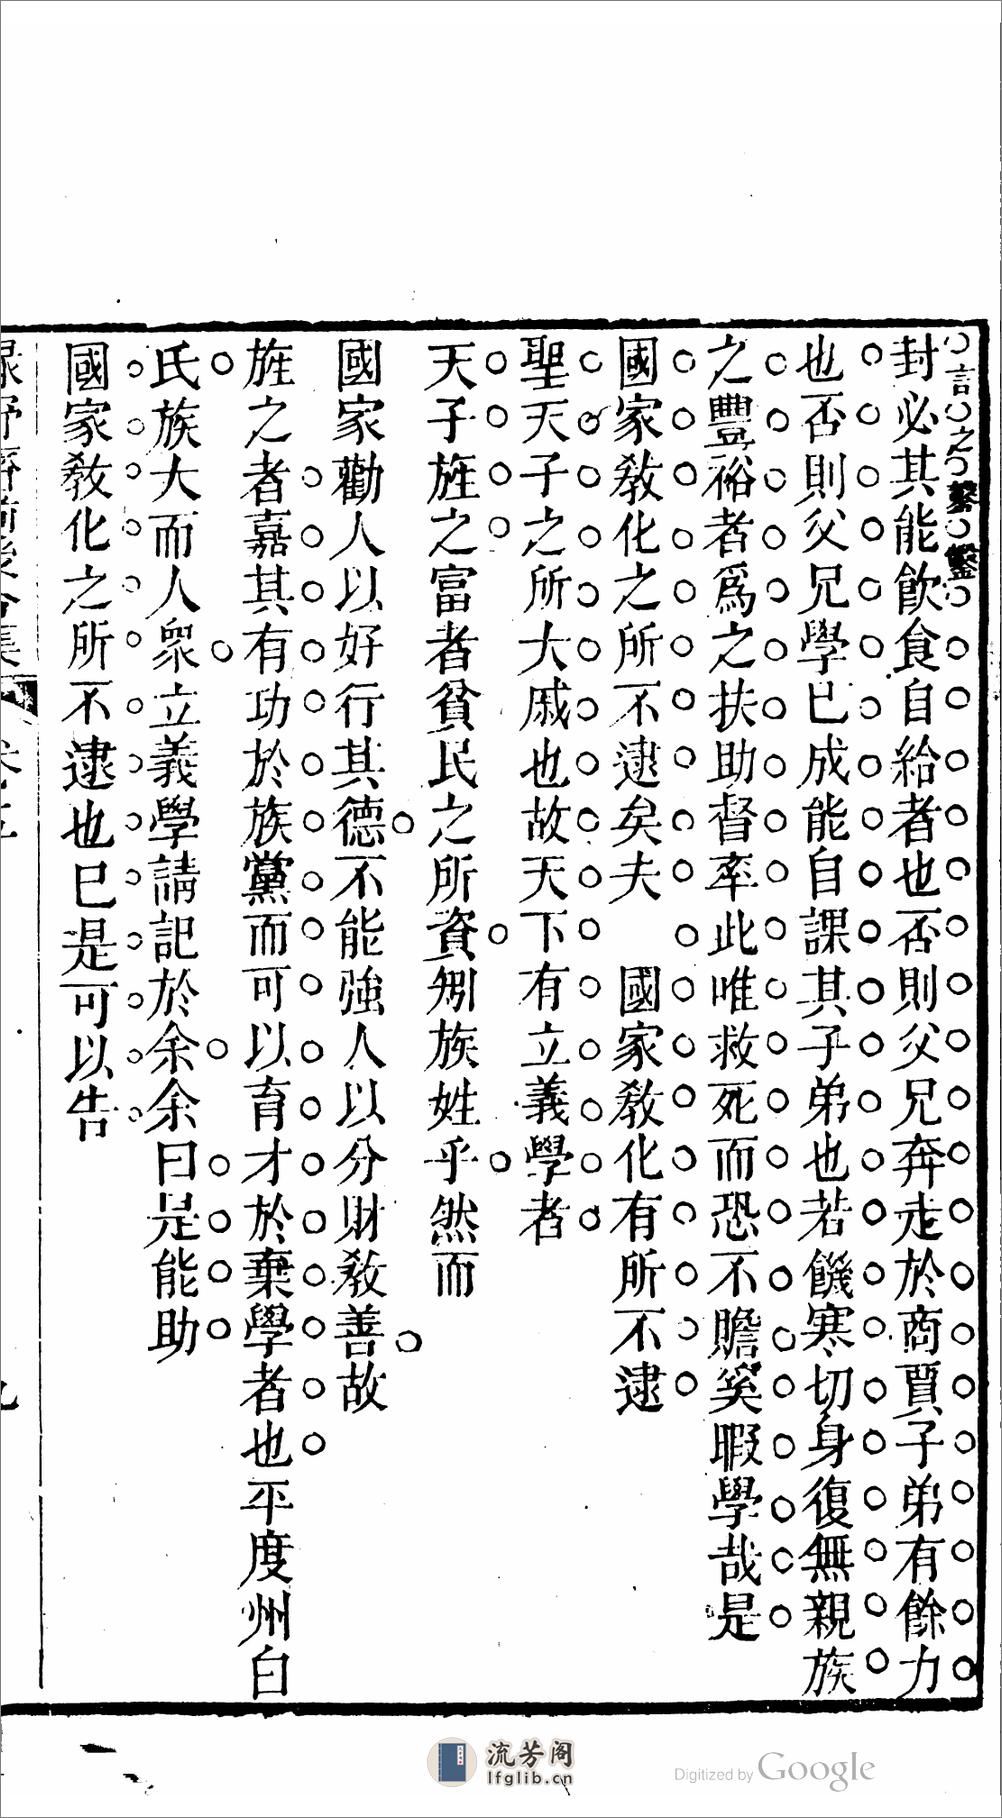 言之鑿鑿
封必其能飲食自給者也否則父兄奔走於商賈子弟有餘力
也否則父兄學已成能自課其子弟也若饑寒切身復無親族
之豐裕者爲之扶助督率此唯救死而恐不贍奚暇學哉是
國家敎化之所不逮矣夫 國家敎化有所不逮
聖天子之所大戚也故天下有立義學者
天子旌之富者貧民之所資矧族姓乎然而
國家勸人以好行其德不能強人以分財敎善故
旌之者嘉其有功於族黨而可以育才於棄學者也平度州白
氏族大而人衆立義學請記於余余曰是能助
國家敎化之所不逮也已是可以告
流芳阁
lfglib.cn
Digitized by Google